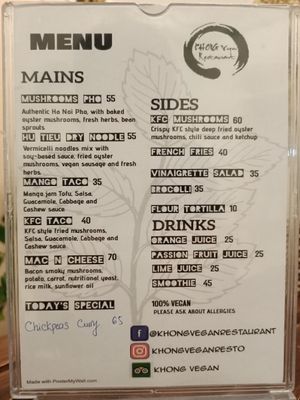 MENU
KHONG Vegan
Restaurant
MAINS
MUSHROOMS PHO 55
Authentic Ha Noi Pho, with baked
oyster mushrooms, fresh herbs, bean
sprouts
HU TIEU DRY NOODLE 55
Vermicelli noodles mix with
soy-based sauce, fried oyster
mushrooms, vegan sausage and fresh
herbs.
MANGO TACO 35
Mango jam Tofu, Salsa,
Guacamole, Cabbage and
Cashew sauce
KFC TACO 40
KFC style fried mushrooms,
Salsa, Guacamole, Cabbage and
Cashew sauce
MAC N CHEESE 70
Bacon smoky mushrooms,
potato, carrot, nutritional yeast,
rice milk, sunflower oil
TODAY'S SPECIAL
Chickpeas Curry 65
SIDES
KFC MUSHROOMS 60
Crispy KFC style deep fried oyster
mushrooms, chili sauce and ketchup
FRENCH FRIES 40
VINAIGRETTE SALAD 35
BROCOLLI 35
FLOUR TORTILLA 10
DRINKS
ORANGE JUICE 25
PASSION FRUIT JUICE 25
LIME JUICE 25
SMOOTHIE 45
100% VEGAN
PLEASE ASK ABOUT ALLERGIES
@KHONGVEGANRESTAURANT
@KHONGVEGANRESTO
KHONG VEGAN
Made with PosterMyWall.com